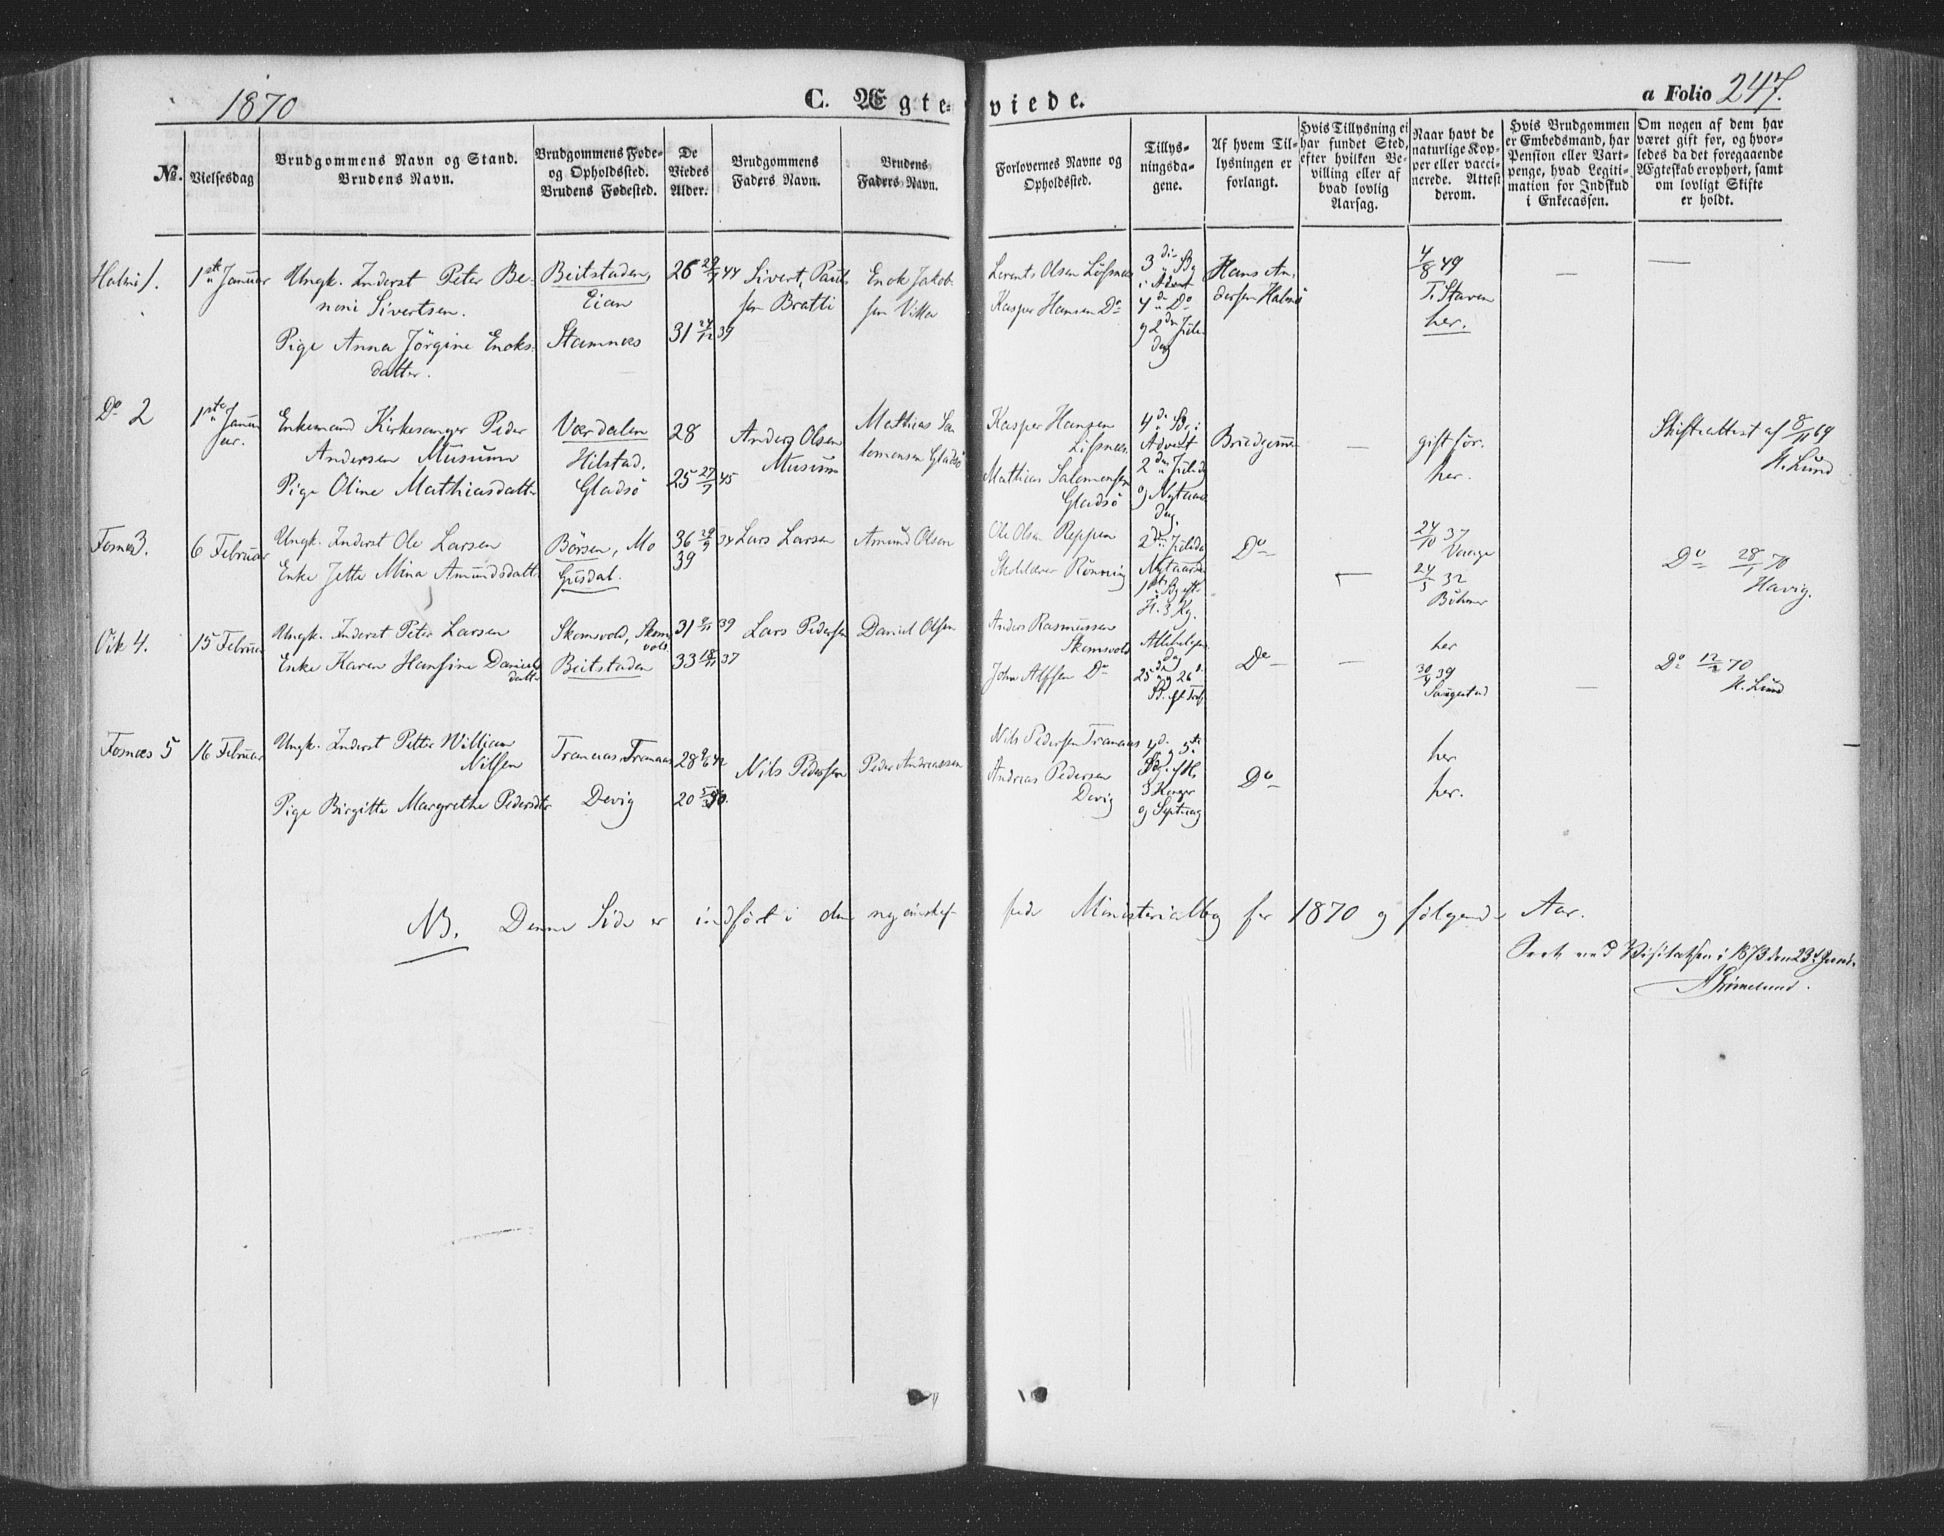 1870
C. Ægte-
viede.
a Folio 247.
No.
Vielsesdag
Brudgommens Navn og Stand.
Brudens Navn.
Brudgommens Føde-
og Opholdssted.
Brudens Fødested.
De
Viedes
Alder.
Brudgommens
Faders Navn.
Brudens
Faders Navn.
Forlovernes Navne og
Opholdssted.
Tillys-
ningsda-
gene.
Af hvem Til-
lysningen er
forlangt.
Hvis Tillysning ei
har fundet Sted,
efter hvilken Be-
villing eller af
hvad lovlig
Aarsag.
Naar havt de
naturlige Kop-
per eller vacci-
nerede. Attest
derom.
Hvis Brudgommen
er Embedsmand, har
Pension eller Vart-
penge, hvad Legiti-
mation for Indskud
i Enkecassen.
Om nogen af dem har
været gift før, og hvor-
ledes da det foregaaende
Ægteskab er ophørt, samt
om lovligt Skifte
er holdt.
1. 1ste Januar
Ungk. Inderst Peter Be-
noni Sivertsen.
Pige Anna Jörgine Enoks-
datter.
Beitstaden,
Eian
Stamnæs
26 44
31 24/12 39
Sivert Pauls
sen Bratli
Enok Jakob-
sen Vikka
Lorents Olsen
Kasper Hansen Do
3die Sg
i Advent
4de Do
og 2den Jule
dag
Hans An-
dersen Halmö
4/8 49
T. Staven
her.
—
—
Do 2 1ste Janu
ar.
Enkemand Kirkesanger Peder
Andersen Musum
Pige Oline Mathiasdatter
Værdalen
Hilstad.
Gladsö
28
25 27/7 45
Anders Olsen
Musum
Mathias Sa
lomonsen Gladsö
Kasper Hansen
Mathias Salomonsen
Gladsö
4de Sg i
Advent
2den Juledag
og Nytaars
dag.
Brudgommen
gift før.
her.
Skifteattest af 8/11 69
H. Lund
Fosnæs 3. 6 Februar
Ungk. Inderst Ole Larsen
Enke Jette Mina Amundsdatt.
Börsen, Mo
Gusdal.
36 29/9 34
39
Lars Larsen
Amund Olsen
Ole Olsen Reppen
Skolelærer Rönning
2den Juledag
Nytaarsd.
1ste Sg eft.
H. 3 Kg.
Do
24/10 37
24/5 32
Böhmer
Do 28/1 70
Havig.
Vik 4. 15 Februar
Ungk. Inderst Peter Larsen
Enke Karen Hansine Daniels
datt.
Skomsvold, Skoms
vold
Beitstaden
31 39
33 37
Lars Pedersen
Daniel Olsen
Anders Rasmussen
Skomsvold
John Alfsen Do
Allehelgen
dag
25 og 26de
S. eft Tref.
Do
—
her
30/9 39
Saugestad
—
Do 12/2 70
H. Lund
Fosnæs 5 16 Februar
Ungk. Inderst Petter William
Nilsen
Pige Birgitte Margrethe Pedersdtr
Tranaas, Tranaas
Devig
28 9/6 42
20
Nils Pedersen
Peder Andreassen
Nils Pedersen Tranaas
Andreas Pedersen
Devig
4de og 5te
Sg. eft. H.
3 Konger
og Septuag
Do
her
her.
NB. Denne Side er indført i den nyeinskaf-
fede Ministerialbog for 1870 og følgende Aar.
Seet ved Visitatsen i 1873 den 23de Juni.
AGrimelund.